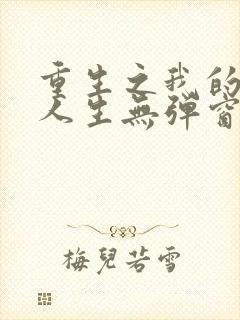 重生之我的
人生無彈窗
梅兒若雪